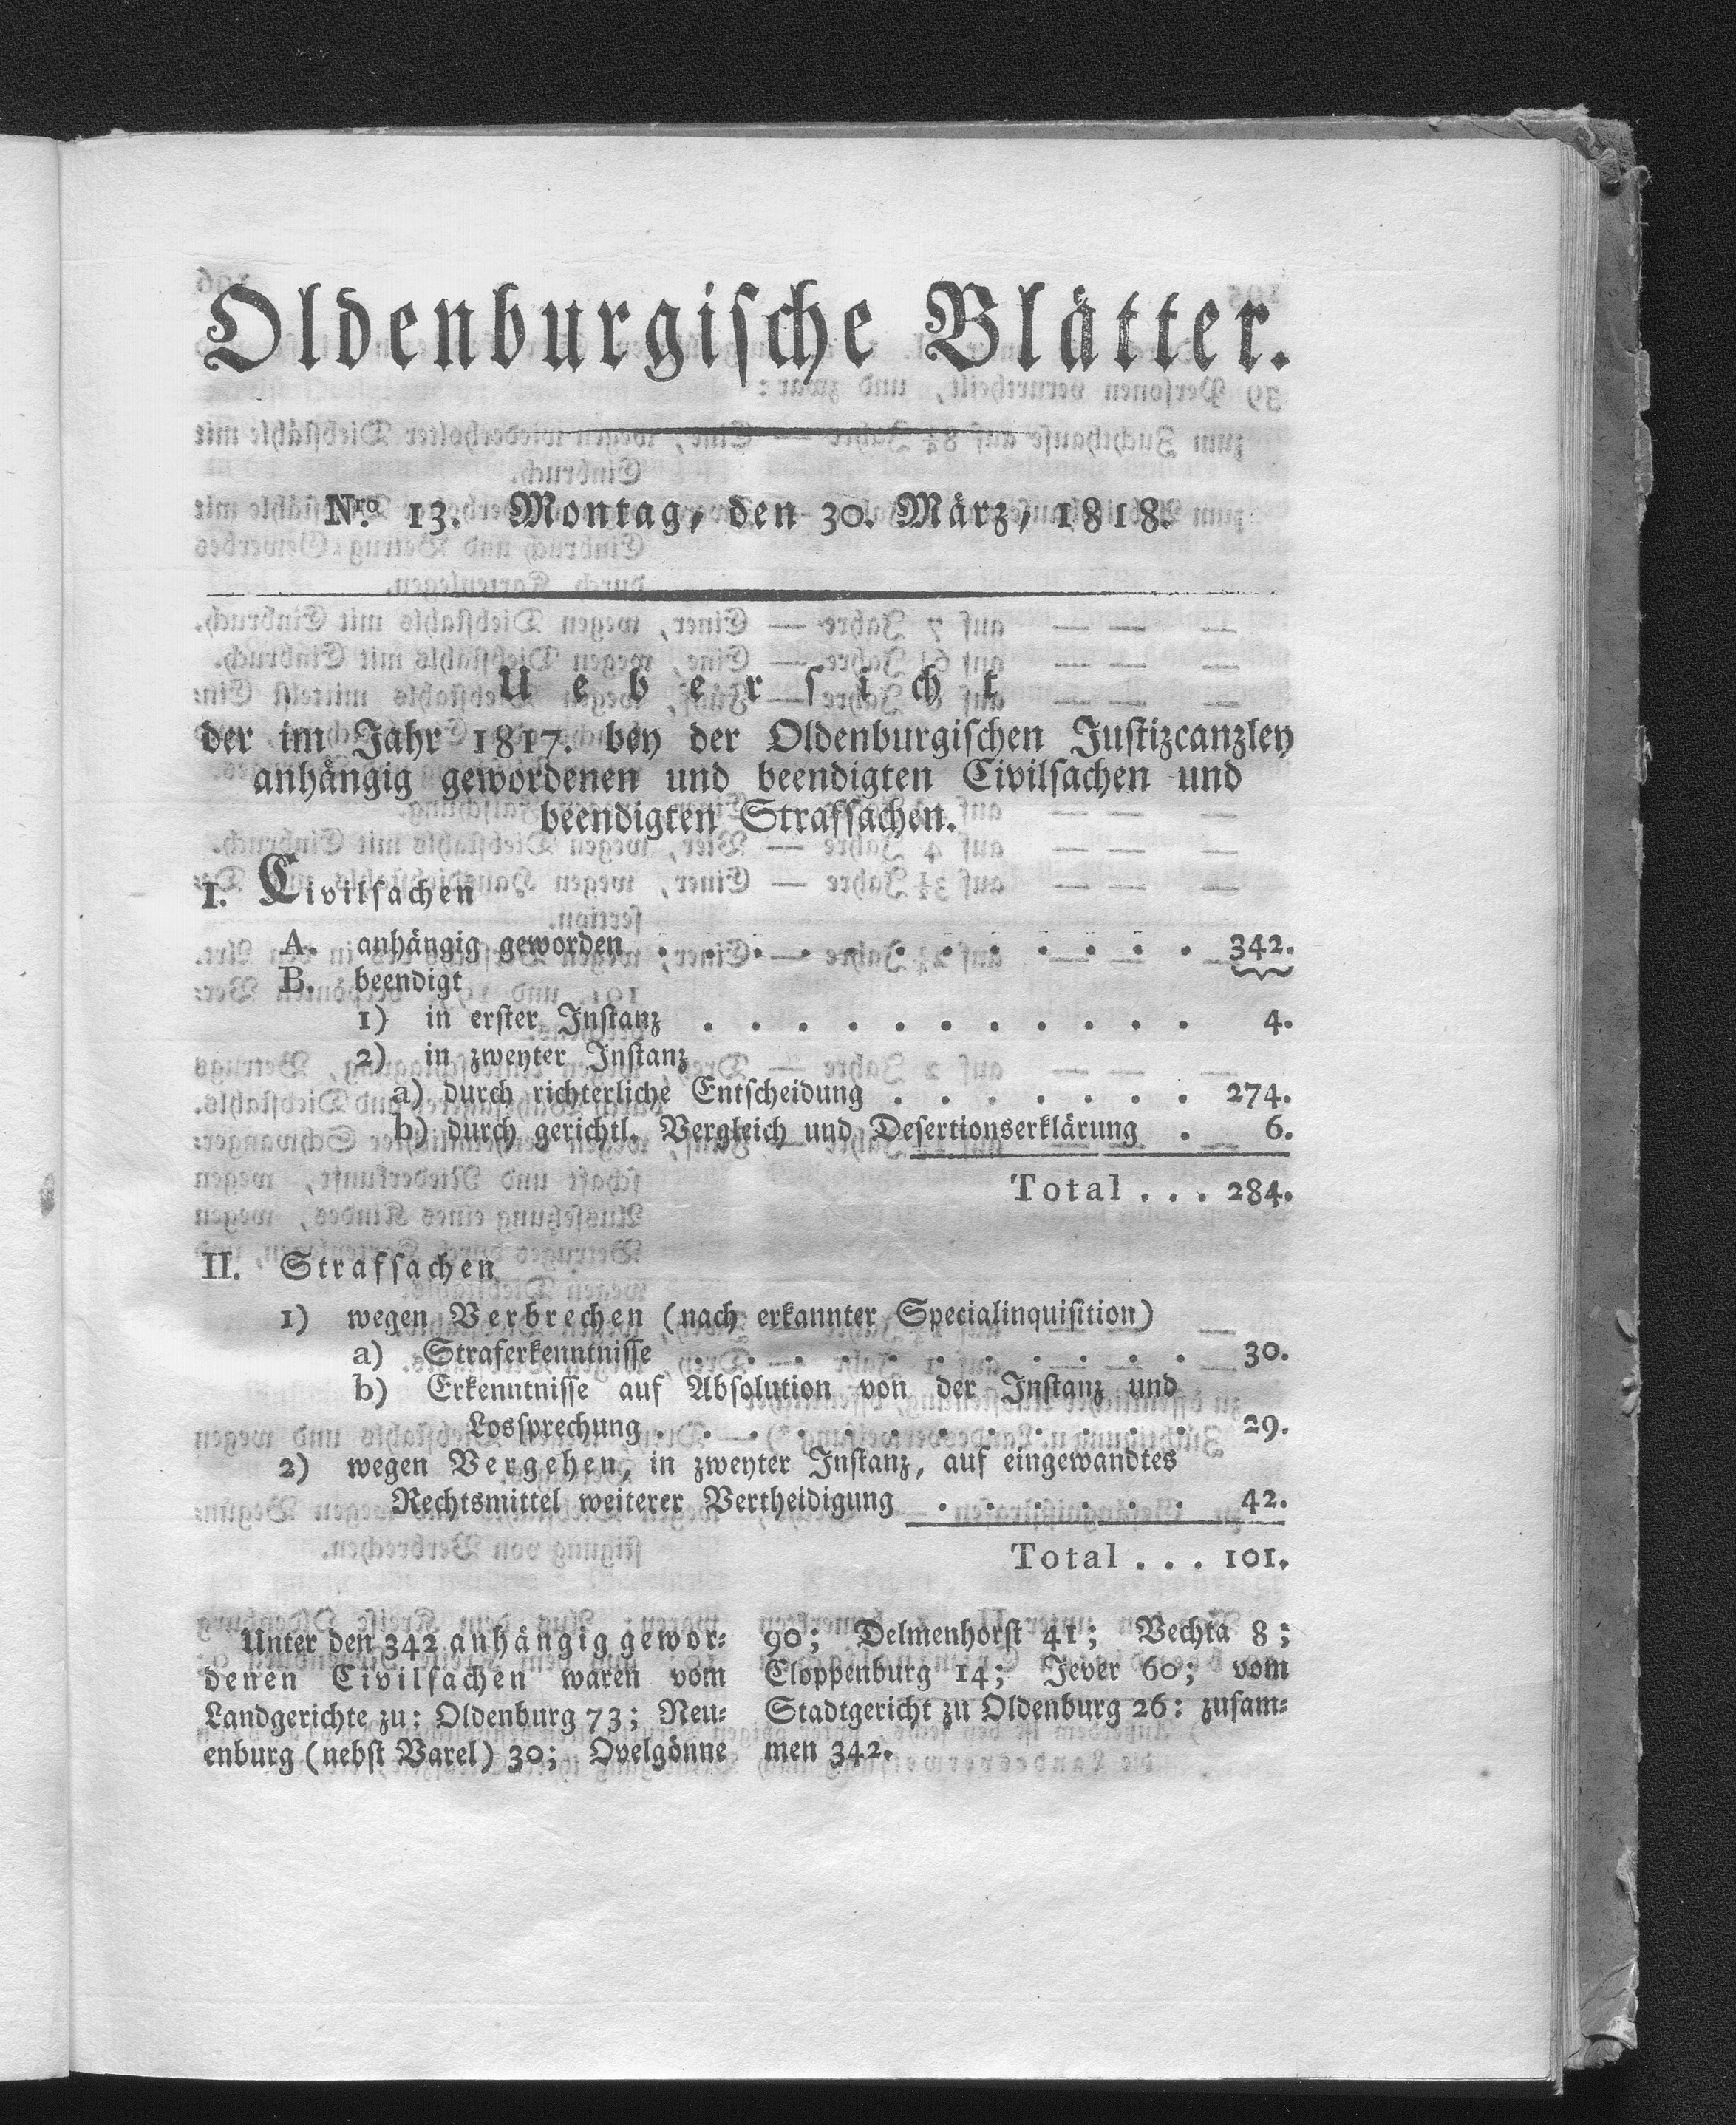 Oldenburgische Blätter.
Nro. 13. Montag, den 30. März, 1818.
Uebersicht
der im Jahr 1817. bey der Oldenburgischen Justizcanzley
anhängig gewordenen und beendigten Civilsachen und
beendigten Strafsachen.
I. Civilsachen
A. anhängig geworden . . . . . . . . . . . . 342.
B. beendigt
1) in erster Instanz . . . . . . . . . . . 4.
2) in zweyter Instanz
a) durch richterliche Entscheidung . . . . . . . 274.
b) durch gerichtl. Vergleich und Desertionserklärung . 6.
Total . . . 284.
II. Strafsachen
1) wegen Verbrechen (nach erkannter Specialinquisition)
a) Straferkenntnisse . . . . . . . . . . . 30.
b) Erkenntnisse auf Absolution von der Instanz und
Lossprechung . . . . . . . . . . . . 29.
2) wegen Vergehen, in zweyter Instanz, auf eingewandtes
Rechtsmittel weiterer Vertheidigung . . . . . . 42.
Total . . . 101.
Unter den 342 anhängig gewor-
denen Civilsachen waren vom
Landgerichte zu: Oldenburg 73; Neu-
enburg (nebst Varel) 30; Ovelgönne
90; Delmenhorst 41; Vechta 8;
Cloppenburg 14; Jever 60; vom
Stadtgericht zu Oldenburg 26: zusam-
men 342.